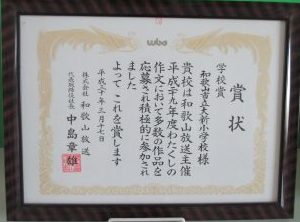 wbs
賞状
学校賞
和歌山市立大新小学校様
貴校は和歌山放送主催
平成二十九年度わたくしの
作文において多数の作品を
応募され積極的に参加され
ました
よってこれを賞します
平成三十年三月十七日
株式会社 和歌山放送
代表取締役社長 中島章雄